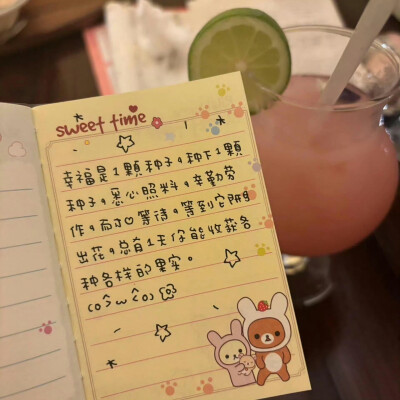 sweet time
幸福是1顆种子，种下1顆
种子，悉心照料，辛勤劳
作，耐心等待，等到它開
出花，总有1天你能收获各
种各样的果实。